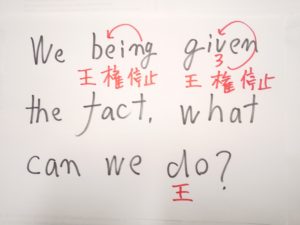 We being given
3
王 権 停止 王 権 停止
the fact, what
can we do?
王